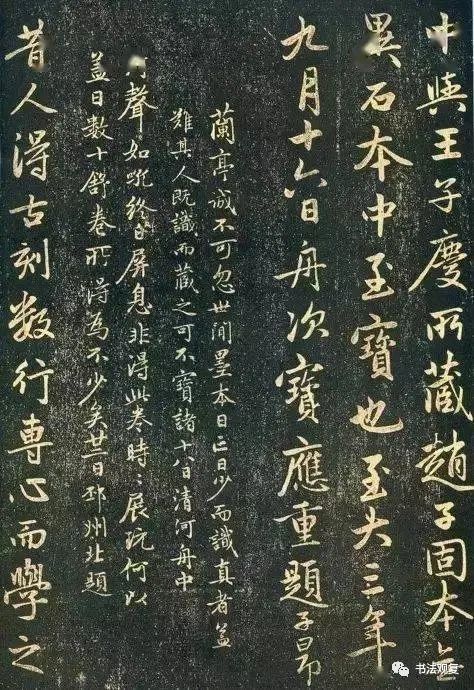 中與王子慶所藏趙子固本無
異石本中至寶也至大三年
九月十六日舟次寶應重題子昂
蘭亭誠不可忽世間墨本日亡日少而識真者蓋
難其人既識而藏之可不寶諸十八日清河舟中
河聲如吼終日屏息非得此卷時〻展玩何以
蓋日數十舒卷所得為不少矣廿二日邳州北題
昔人得古刻數行專心而學之
书法观复